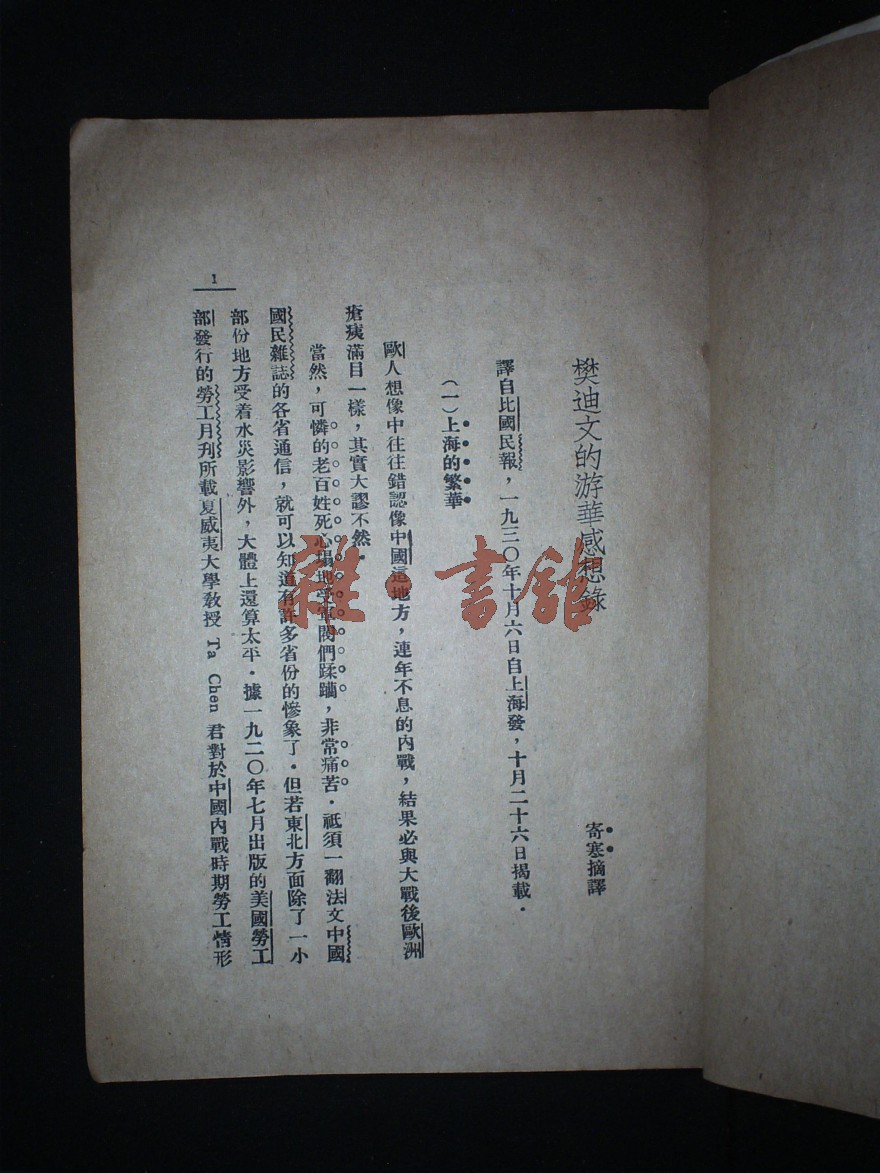 樊迪文的游華感想錄
寄寒摘譯
譯自比國民報，一九三〇年十月六日自上海發，十月二十六日揭載．
（一）上海的繁華
歐人想像中往往錯認像中國這地方，連年不息的內戰，結果必與大戰後歐洲
瘡痍滿目一樣，其實大謬不然．
當然，可憐的老百姓死心塌地受軍閥們蹂躪，非常痛苦．祗須一翻法文中國
國民雜誌的各省通信，就可以知道有許多省份的慘象了．但若東北方面除了一小
部份地方受着水災影響外，大體上還算太平．據一九二〇年七月出版的美國勞工
部發行的勞工月刊所載夏威夷大學教授 Ta Chen 君對於中國內戰時期勞工情形
1
雜·書館